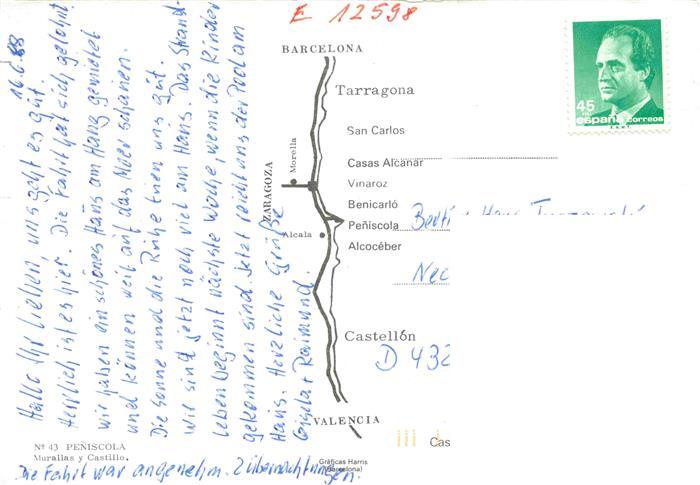 16.6.88
Hallo Ihr Lieben, uns geht es gut.
Herrlich ist es hier. Die Fahrt hat sich gelohnt
wir haben ein schönes Haus am Hang gemietet
und können weit auf das Meer schauen.
Die Sonne und die Ruhe tuen uns gut.
Wir sind jetzt noch viel am Haus. Das Strand-
leben beginnt nächste Woche, wenn die Kinder
gekommen sind. Jetzt reicht uns der Pool am
Haus. Herzliche Grüße
Gisela + Raimund.
Die Fahrt war angenehm. 2 Übernachtungen.
Nº 43 PEÑISCOLA
Murallas y Castillo.
E 12598
BARCELONA
Tarragona
San Carlos
Morella
Casas Alcanar
ZARAGOZA
Vinaroz
Benicarló
Peñiscola
Alcala
Alcocéber
Castellón
VALENCIA
Gráficas Harris
(Barcelona)
45
españa correos
Hans
Nec
D 432
Cas